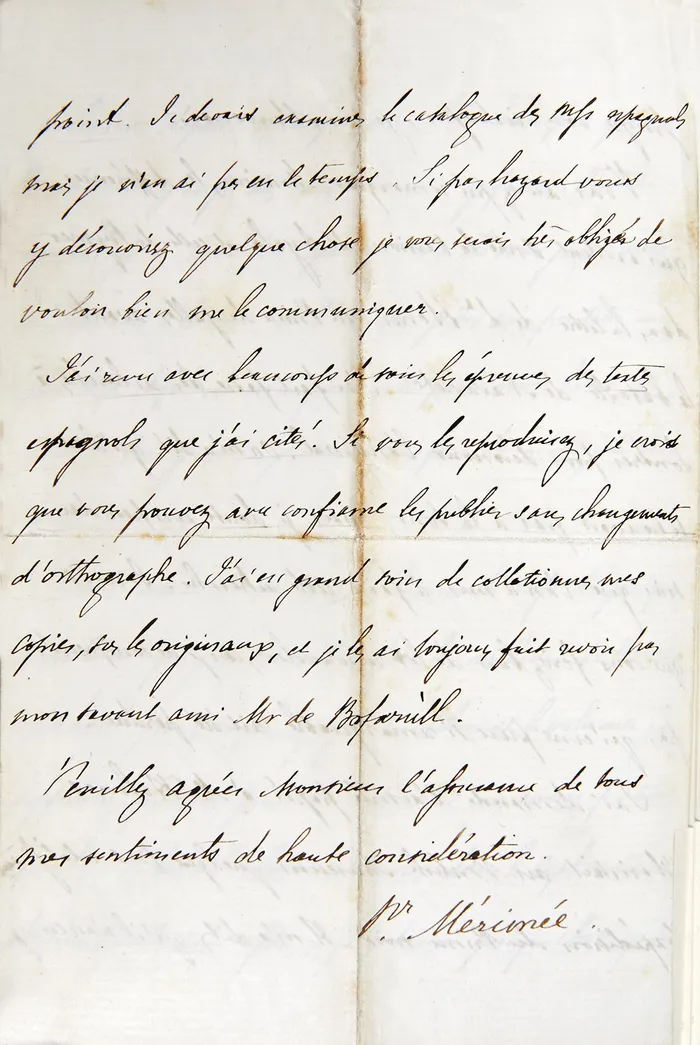 point. Je devais examiner le catalogue des mss espagnols
mais je n'en ai pas eu le temps. Si par hazard vous
y découvriez quelque chose je vous serais très obligé de
vouloir bien me le communiquer.
J'ai revu avec beaucoup de soin les épreuves des textes
espagnols que j'ai cités. Si vous les reproduisez, je crois
que vous pouvez avec confiance les publier sans changements
d'orthographe. J'ai eu grand soin de collationner mes
copies, sur les originaux, et je les ai toujours fait revoir par
mon savant ami Mr de Bofarull.
Veuillez agréer Monsieur l'assurance de tous
mes sentiments de haute considération.
Pr Mérimée